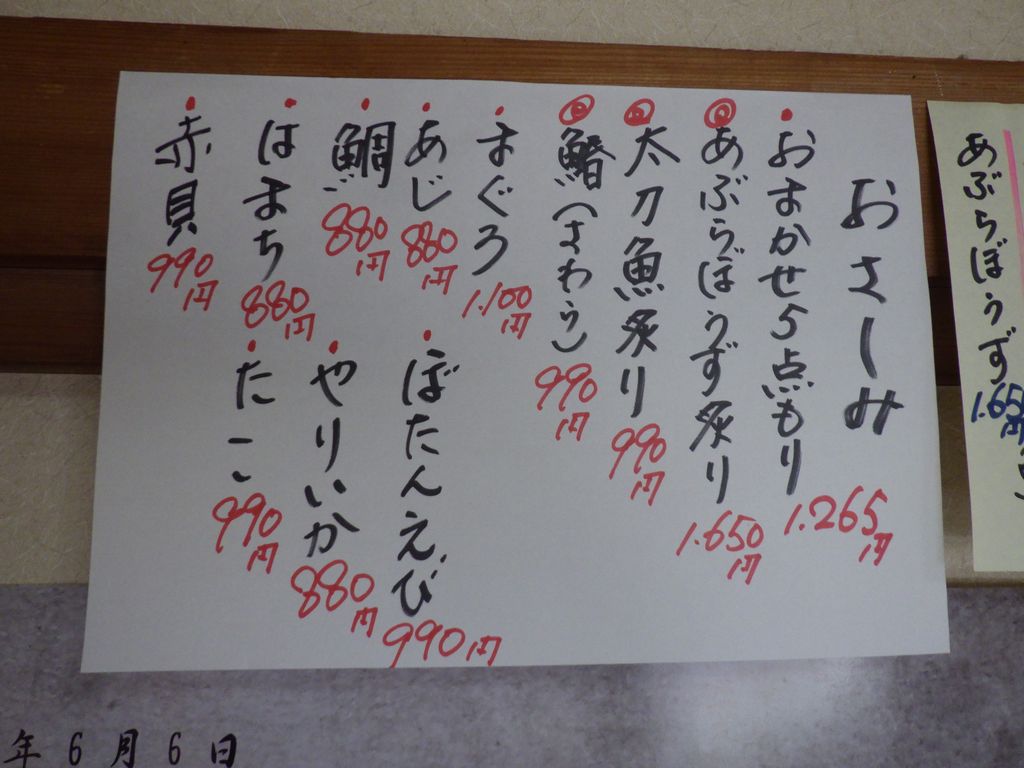 おさしみ
・おまかせ5点もり 1.265円
あぶらぼうず炙り 1.650円
太刀魚炙り 990円
鰆(さわら) 990円
・まぐろ 1.100円
・あじ 880円
・ぼたんえび 990円
・鯛 880円
・やりいか 880円
・はまち 880円
・たこ 990円
・赤貝 990円
あぶらぼうず
1.65
円
年6月6日